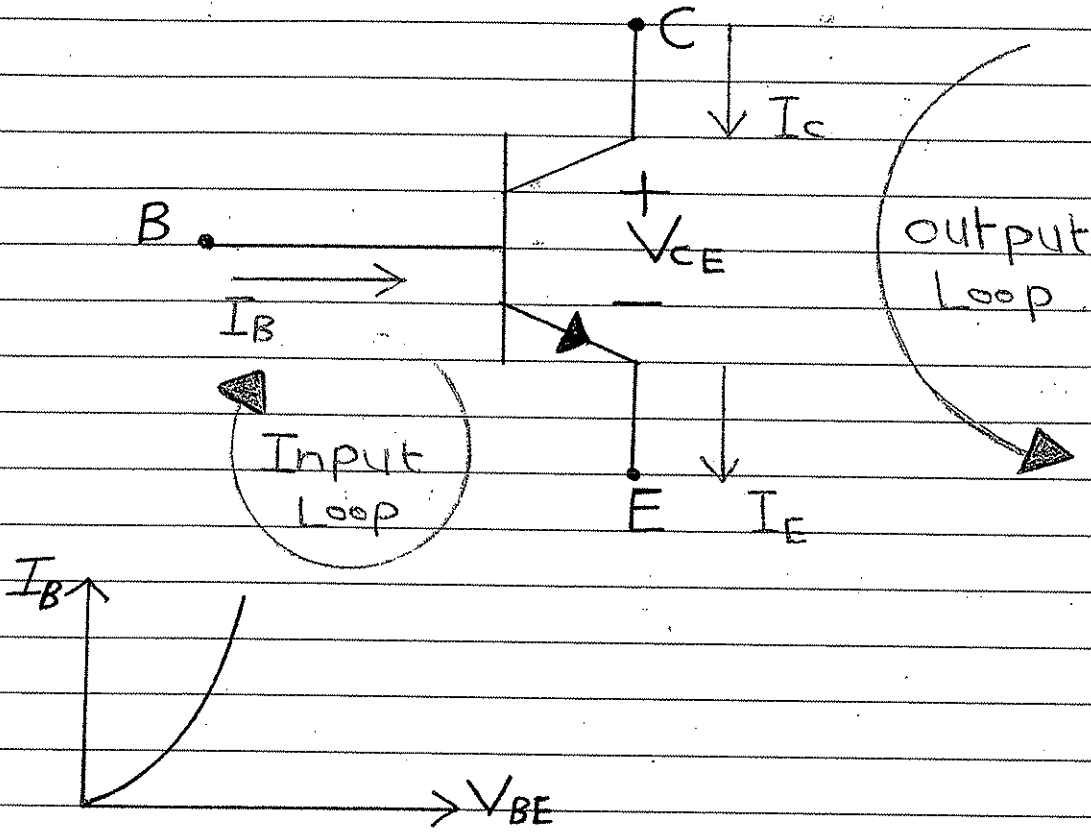 C
I_C
B
+
V_CE
−
output
Loop
I_B
Input
Loop
E
I_E
I_B
V_BE